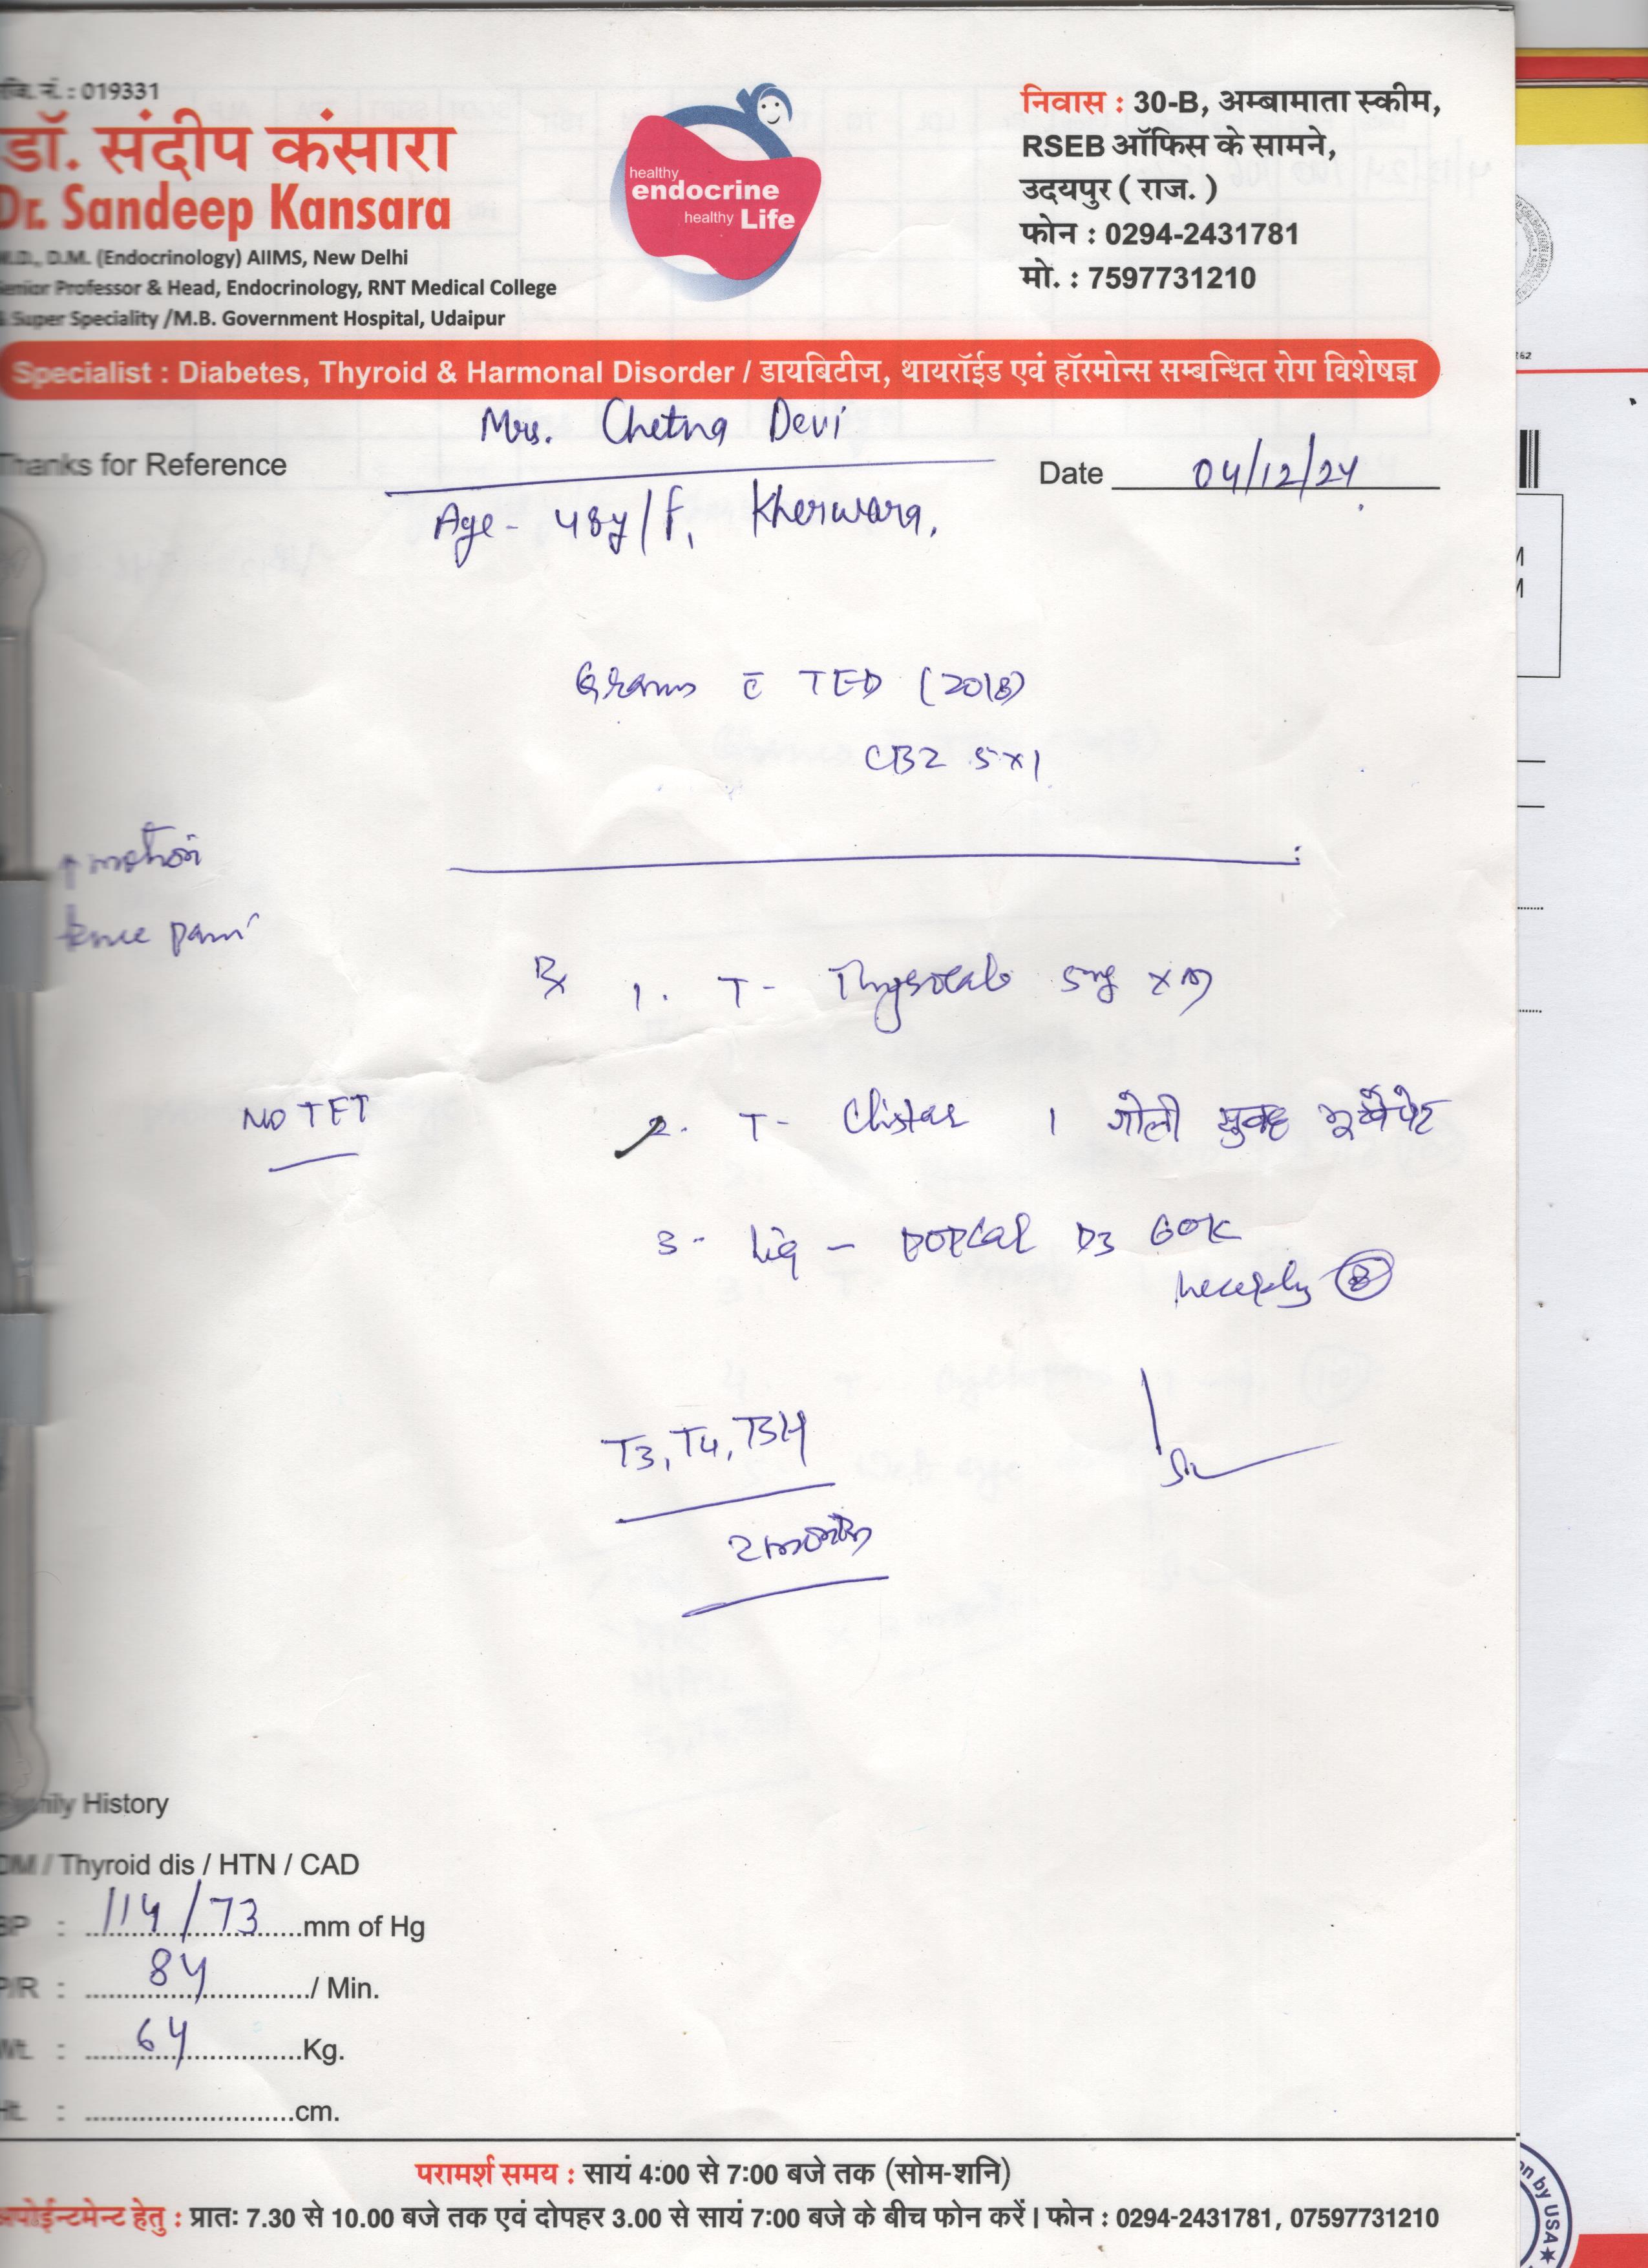 जि. नं. : 019331
डॉ. संदीप कंसारा
Dr. Sandeep Kansara
M.D., D.M. (Endocrinology) AIIMS, New Delhi
Senior Professor & Head, Endocrinology, RNT Medical College
& Super Speciality /M.B. Government Hospital, Udaipur
healthy
endocrine
healthy Life
निवास : 30-B, अम्बामाता स्कीम,
RSEB ऑफिस के सामने,
उदयपुर ( राज. )
फोन : 0294-2431781
मो. : 7597731210
Specialist : Diabetes, Thyroid & Harmonal Disorder / डायबिटीज, थायरॉईड एवं हॉरमोन्स सम्बन्धित रोग विशेषज्ञ
Mrs. Chetna Devi
Thanks for Reference
Date 04/12/24
Age - 48y/F, Kherwara,
TED (2018)
CBZ 5x1
↑ motion
knee pain
Rx 1. T- 5mg x
NO TFT
2. T- 1 गोली सुबह भूखे पेट
3- Liq - D3 60K
T3, T4, TSH
2 month
Family History
DM / Thyroid dis / HTN / CAD
BP : 114/73 mm of Hg
P/R : 84 / Min.
Wt. : 64 Kg.
Ht. : cm.
परामर्श समय : सायं 4:00 से 7:00 बजे तक (सोम-शनि)
अपोईन्टमेन्ट हेतु : प्रातः 7.30 से 10.00 बजे तक एवं दोपहर 3.00 से सायं 7:00 बजे के बीच फोन करें। फोन : 0294-2431781, 07597731210
on by USA